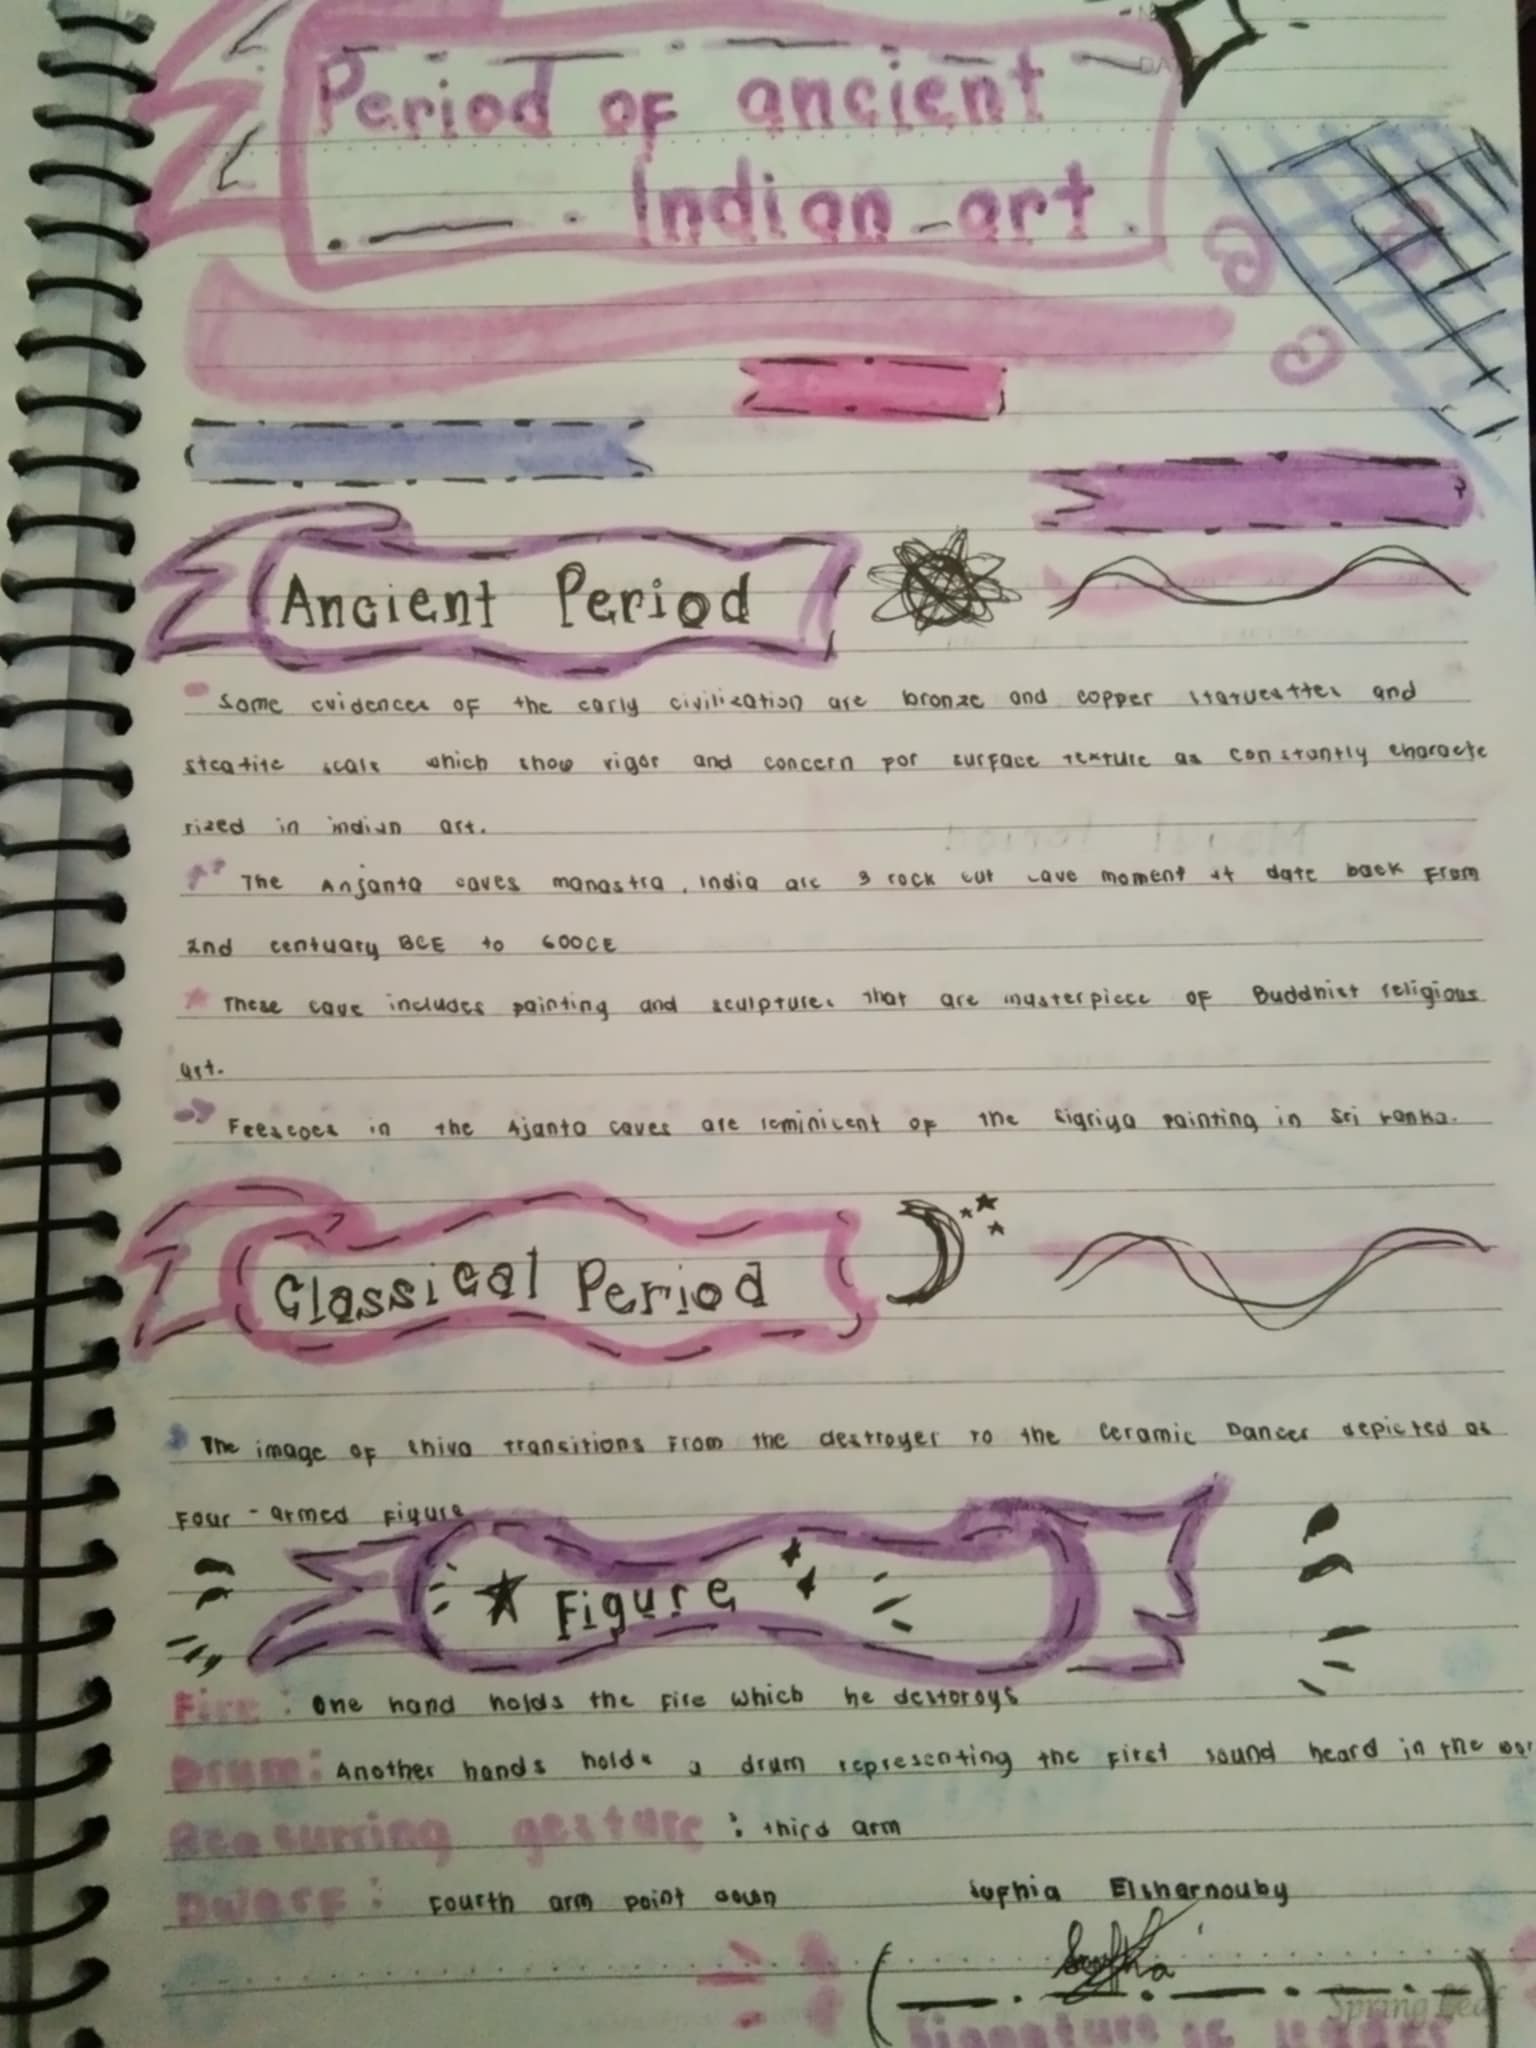 Period of ancient
Indian art
Ancient Period
Some evidences of the early civilization are bronze and copper statuettes and
steatite seals which show vigor and concern for surface texture as constantly characte
rized in indian art.
The Anjanta caves manastra, India are 3 rock cut cave moment it date back from
2nd centuary BCE to 600CE
These cave includes painting and sculptures that are masterpiece of Buddhist religious
art.
Frescoes in the Ajanta caves are reminicent of the Sigriya painting in Sri Lanka.
Classical Period
The image of shiva transitions from the destroyer to the ceramic Dancer depicted as
Four-armed figure
Figure
Fire: One hand holds the fire which he destoroys
Drum: Another hands holds a drum representing the first sound heard in the
gesture: third arm
Dwarf: Fourth arm point down
Sophia Elsharnouby
Spring Leaf
Signature